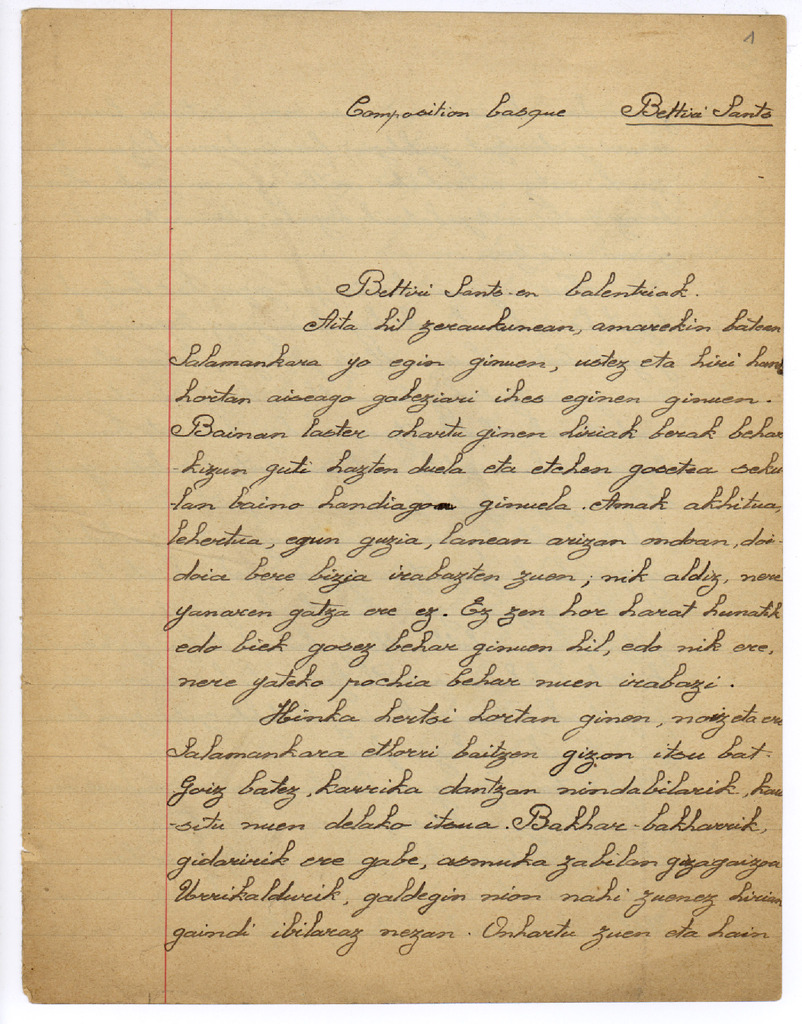 1
Composition basque Bettiri Sants
Bettiri Sants-en balentriak.
Aita hil zeraukunean, amarekin batean
Salamankara yo egin ginuen, ustez eta hiri handi
hortan aiseago gabeziari ihes eginen ginuen.
Bainan laster ohartu ginen hiriak berak behar
-kizun guti hazten duela eta etchen gosetea seku
-lan baino handiagoa ginuela. Amak akhitua,
lehertua, egun guzia, lanean arizan ondoan, doi-
doia bere bizia irabazten zuen; nik aldiz, nere
yanaren gatza ere ez. Ez zen hor harat hunatik
edo biek gosez behar ginuen hil, edo nik ere,
nere yateko pochia behar nuen irabazi.
Hinka hertsi hortan ginen, noiz eta ere
Salamankara ethorri baitzen gizon itsu bat.
Goiz batez, karrika dantzan nindabilarik, kau
-situ nuen delako itsua. Bakhar-bakharrik,
gidaririk ere gabe, asmuka zabilan gizagaizoa
Urrikaldurik, galdegin nion nahi zuenez hirian
gaindi ibilaraz nezan. Onhartu zuen eta hain